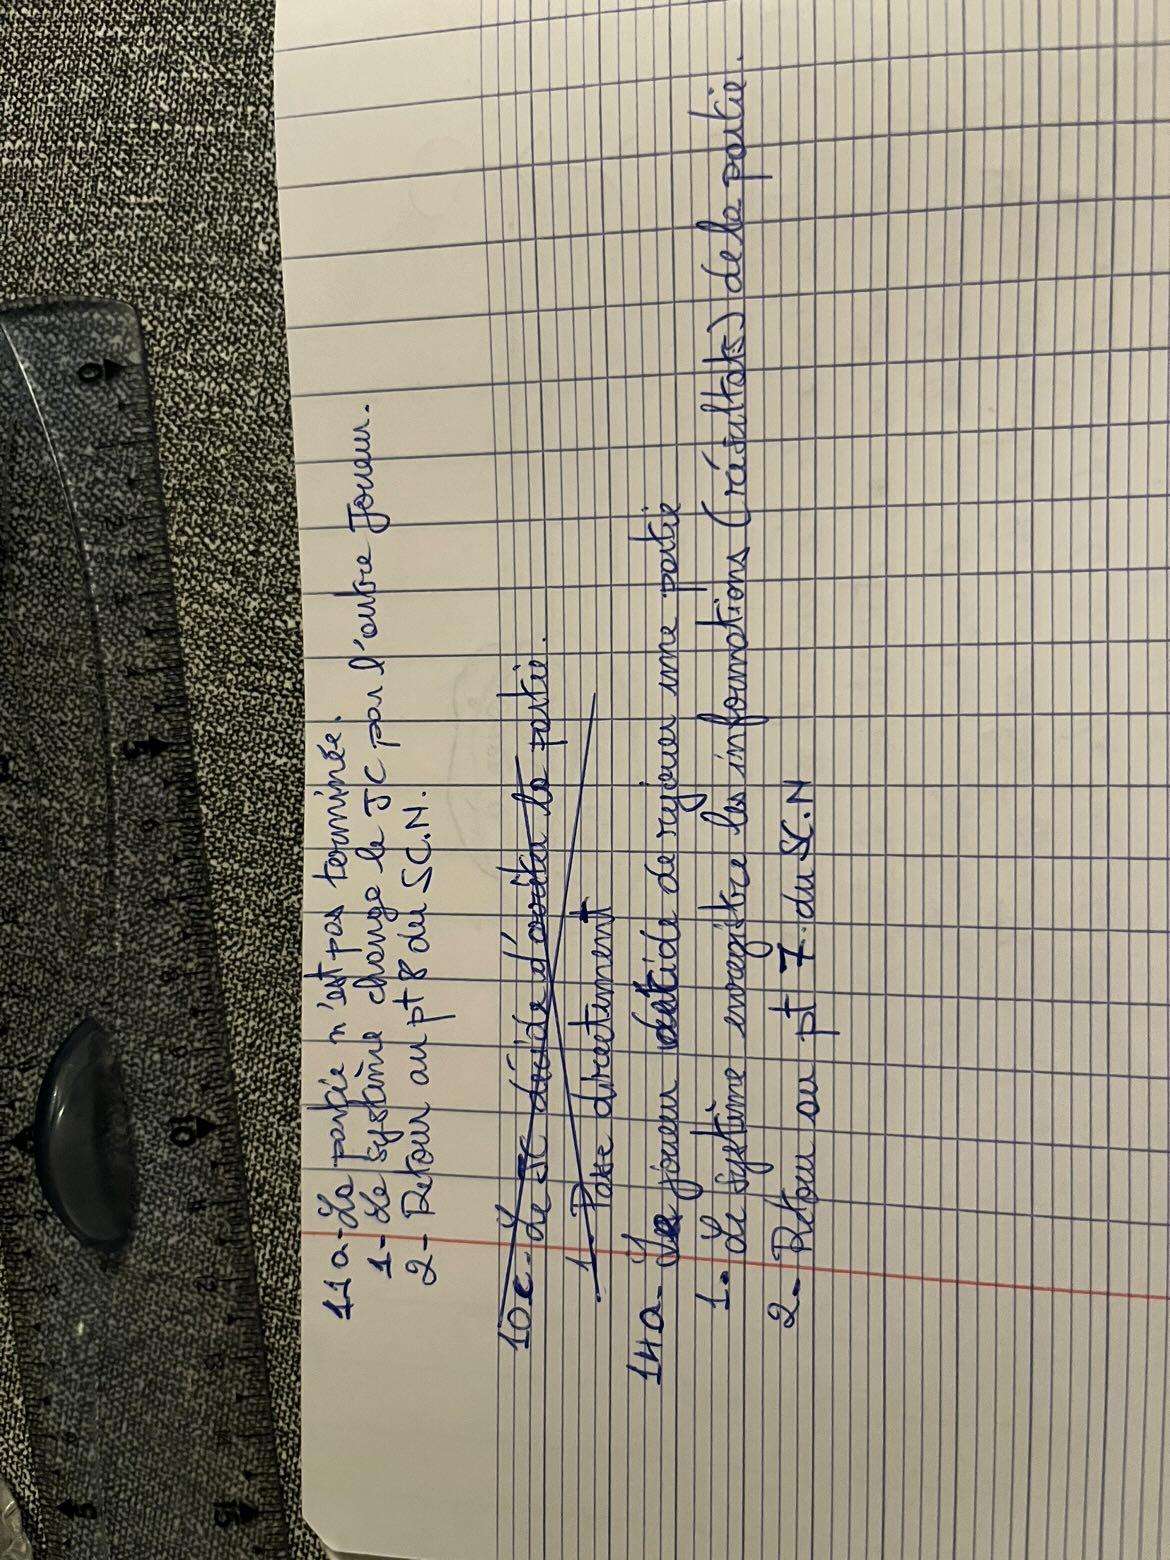 11a- La partie n'est pas terminée.
1- Le système change le JC par l'autre Joueur.
2- Retour au pt 8 du SC.N.
10c- Le JC décide d'arrêter la partie.
1- Passe directement
14a- Le joueur décide de rejouer une partie
1. Le système enregistre les informations (résultats) de la partie.
2- Retour au pt 7 du SC.N
0
5
10
15